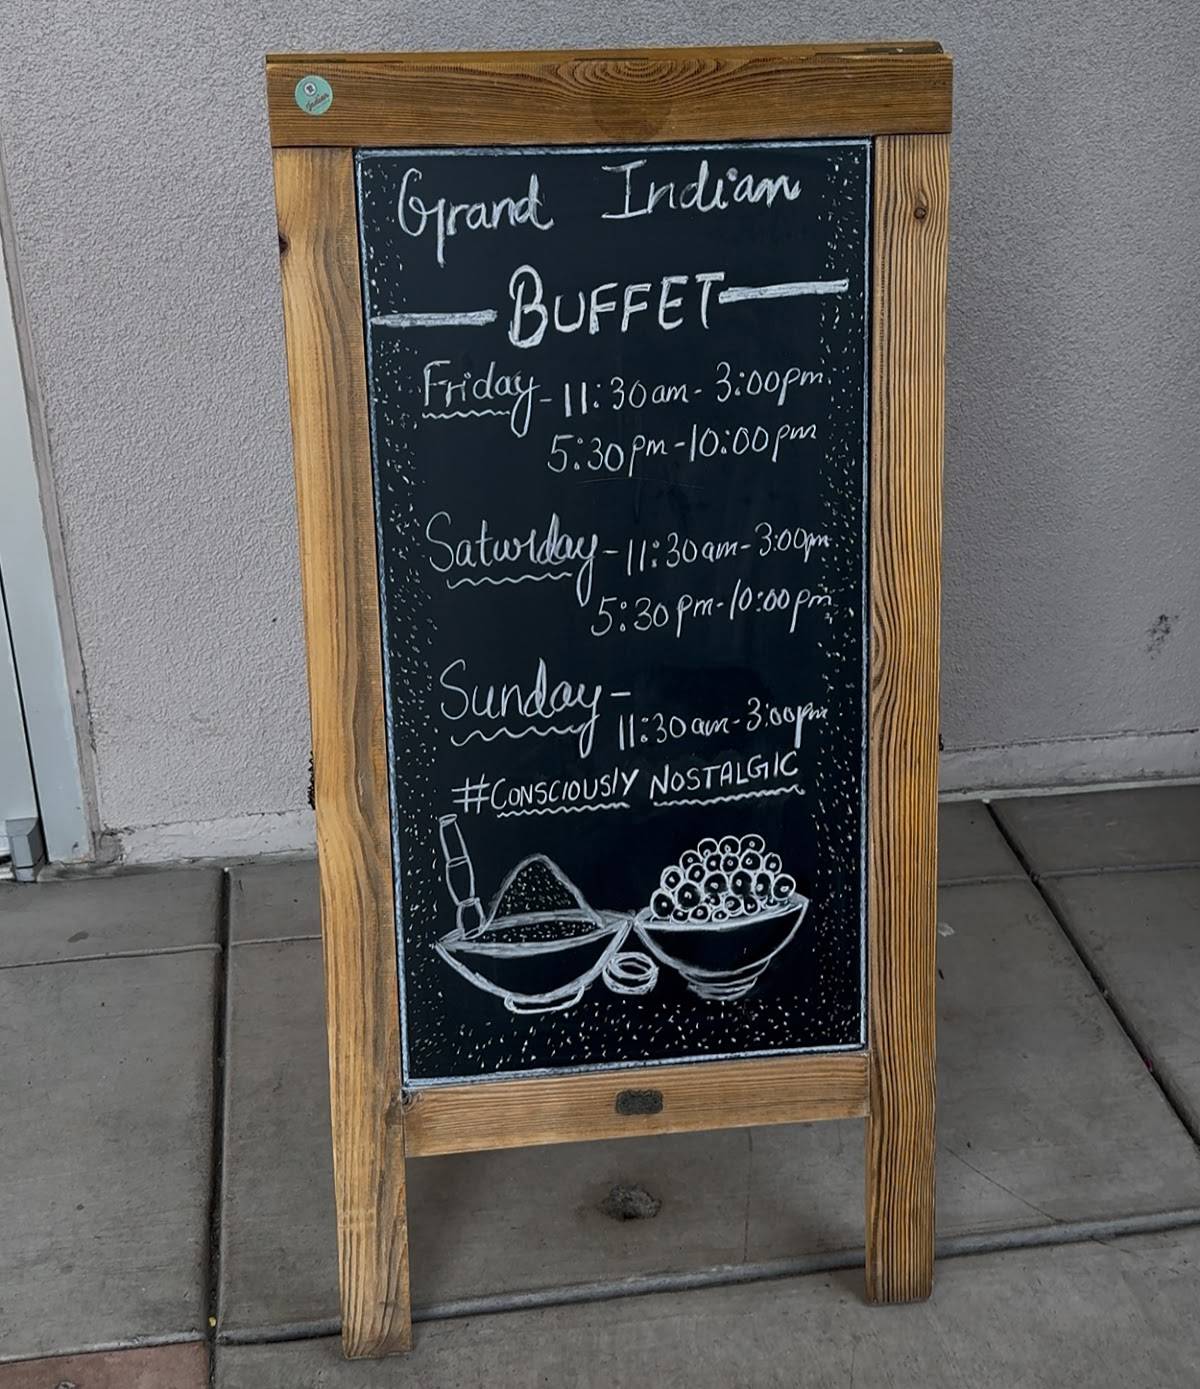 Grand Indian
BUFFET
Friday - 11:30am - 3:00pm
5:30pm - 10:00pm
Saturday - 11:30am - 3:00pm
5:30pm - 10:00pm
Sunday -
11:30am - 3:00pm
#CONSCIOUSLY NOSTALGIC